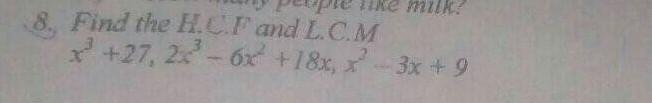 people like milk?
8. Find the H.C.F and L.C.M
x³ +27, 2x³ – 6x² +18x, x² – 3x + 9